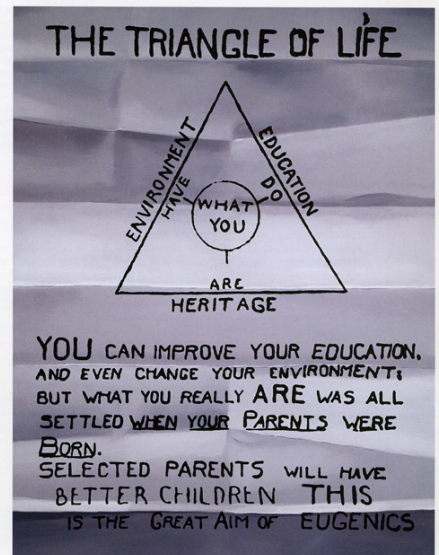 THE TRIANGLE OF LIFE
ENVIRONMENT
EDUCATION
HAVE
DO
WHAT
YOU
ARE
HERITAGE
YOU CAN IMPROVE YOUR EDUCATION,
AND EVEN CHANGE YOUR ENVIRONMENT;
BUT WHAT YOU REALLY ARE WAS ALL
SETTLED WHEN YOUR PARENTS WERE
BORN.
SELECTED PARENTS WILL HAVE
BETTER CHILDREN THIS
IS THE GREAT AIM OF EUGENICS